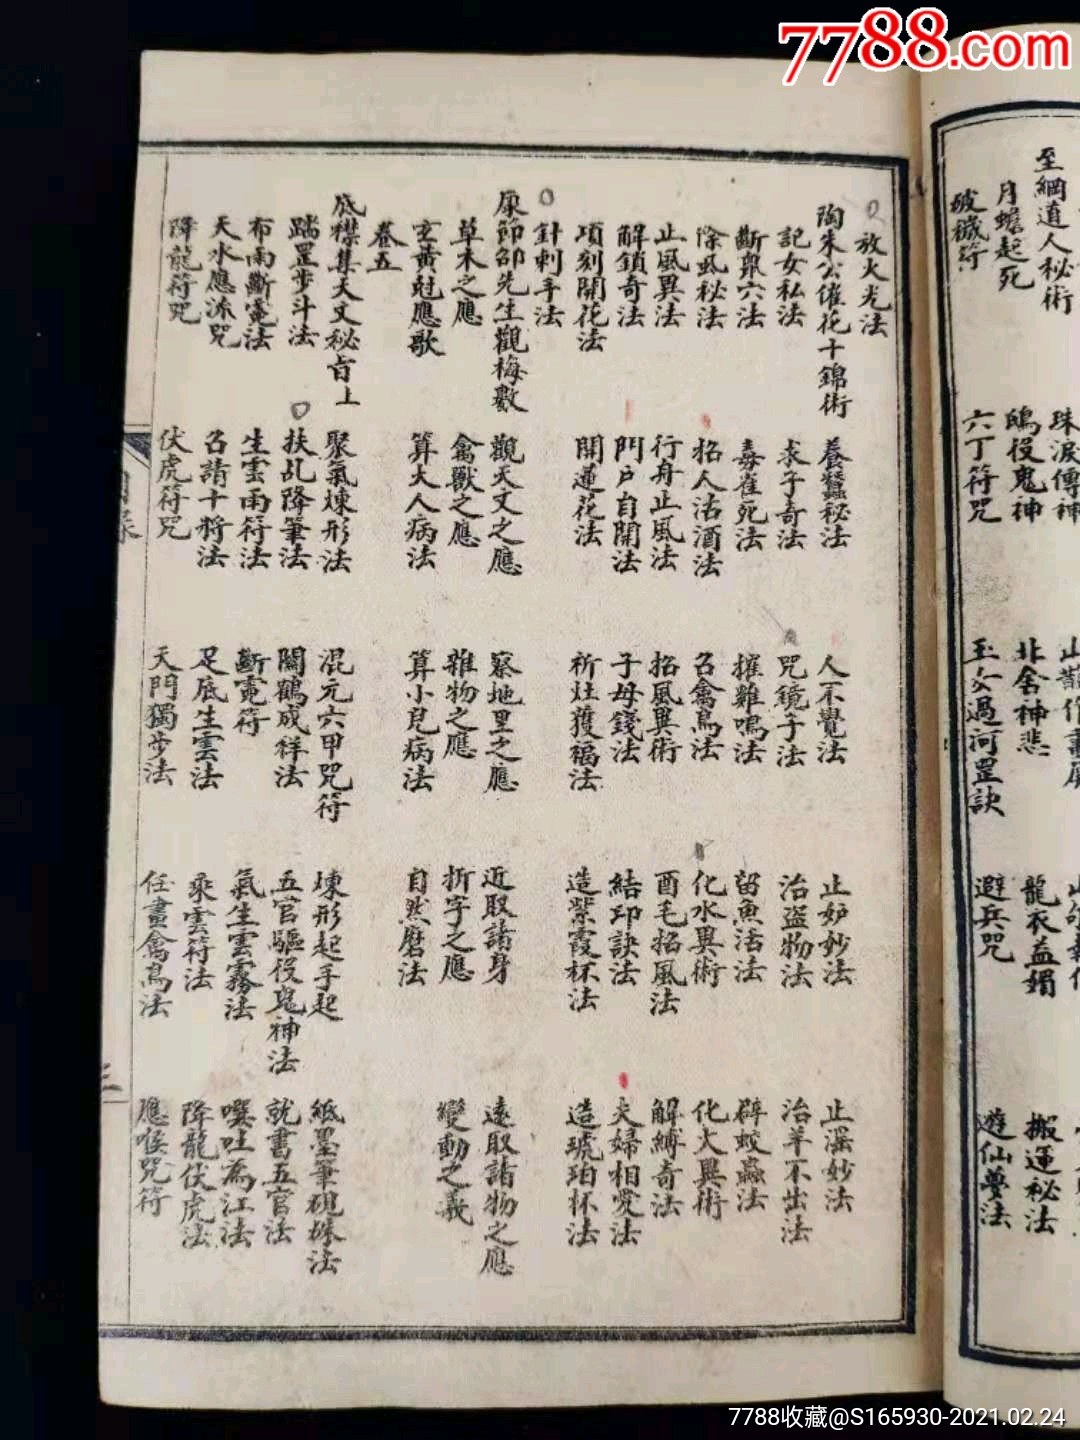 7788.com
至綱道人秘術
珠淚傳神
月蟾起死
鴟役鬼神
北舍神悲
龍衣益媚
搬運秘法
破穢符
六丁符咒
玉女過河罡訣
避兵咒
遊仙夢法
放火光法
陶朱公催花十錦術
養蠶秘法
人不覺法
止妒妙法
止淫妙法
記女私法
求子奇法
咒鏡子法
治盜物法
治羊不出法
斷鼠六法
毒雀死法
摧雞鳴法
留魚活法
辟蚊蟲法
除虱秘法
招人沽酒法
召禽鳥法
化水異術
化火異術
止風異法
行舟止風法
招風異術
酉毛招風法
解縛奇法
解鎖奇法
門戶自開法
子母錢法
結印訣法
夫婦相愛法
頃刻開花法
開蓮花法
祈灶獲福法
造紫霞杯法
造琥珀杯法
針刺手法
康節邵先生觀梅數
觀天文之應
察地里之應
近取諸身
遠取諸物之應
草木之應
禽獸之應
雜物之應
折字之應
變動之義
玄黃尅應歌
算大人病法
算小兒病法
自然磨法
卷五
底襟集天文秘旨上
聚氣煉形法
混元六甲咒符
煉形起手起
紙墨筆硯硃法
踏罡步斗法
扶乩降筆法
關鶴成祥法
五官驅役鬼神法
就書五官法
布雨斷霓法
生雲雨符法
斷霓符
氣生雲霧法
噀吐為江法
天水應派咒
召請十將法
足底生雲法
乘雲符法
降龍伏虎法
降龍符咒
伏虎符咒
天門獨步法
任畫禽鳥法
應喉咒符
目錄
三
7788收藏@S165930-2021.02.24